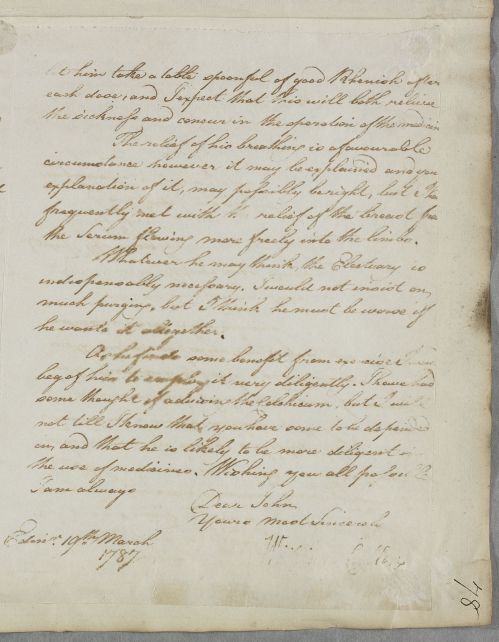 let him take a table spoonful of good Rhenish after
each dose, and I expect that this will both relieve
the sickness and concur in the operation of the medicin
The relief of his breathing is a favourable
circumstance however it may be explained and you
explanation of it, may possibly be right, but I ha
frequently met with relief of the breast
the Serum flowing more freely into the limbs.
Whatever he may think, the Electuary is
indispensably necessary. I would not insist on
much purging, but I think he must be worse if
he wants it altogether.
As he finds some benefit from exercise I
beg of him to employ it very diligently. I have had
some thought of advising the Colchicum, but I will
not till I know that you have some to be depended
on, and that he is likely to be more diligent in
the use of medicines. Wishing you all
I am always
Dear John
Yours most Sincerely
Edinr. 19th March
1787
84